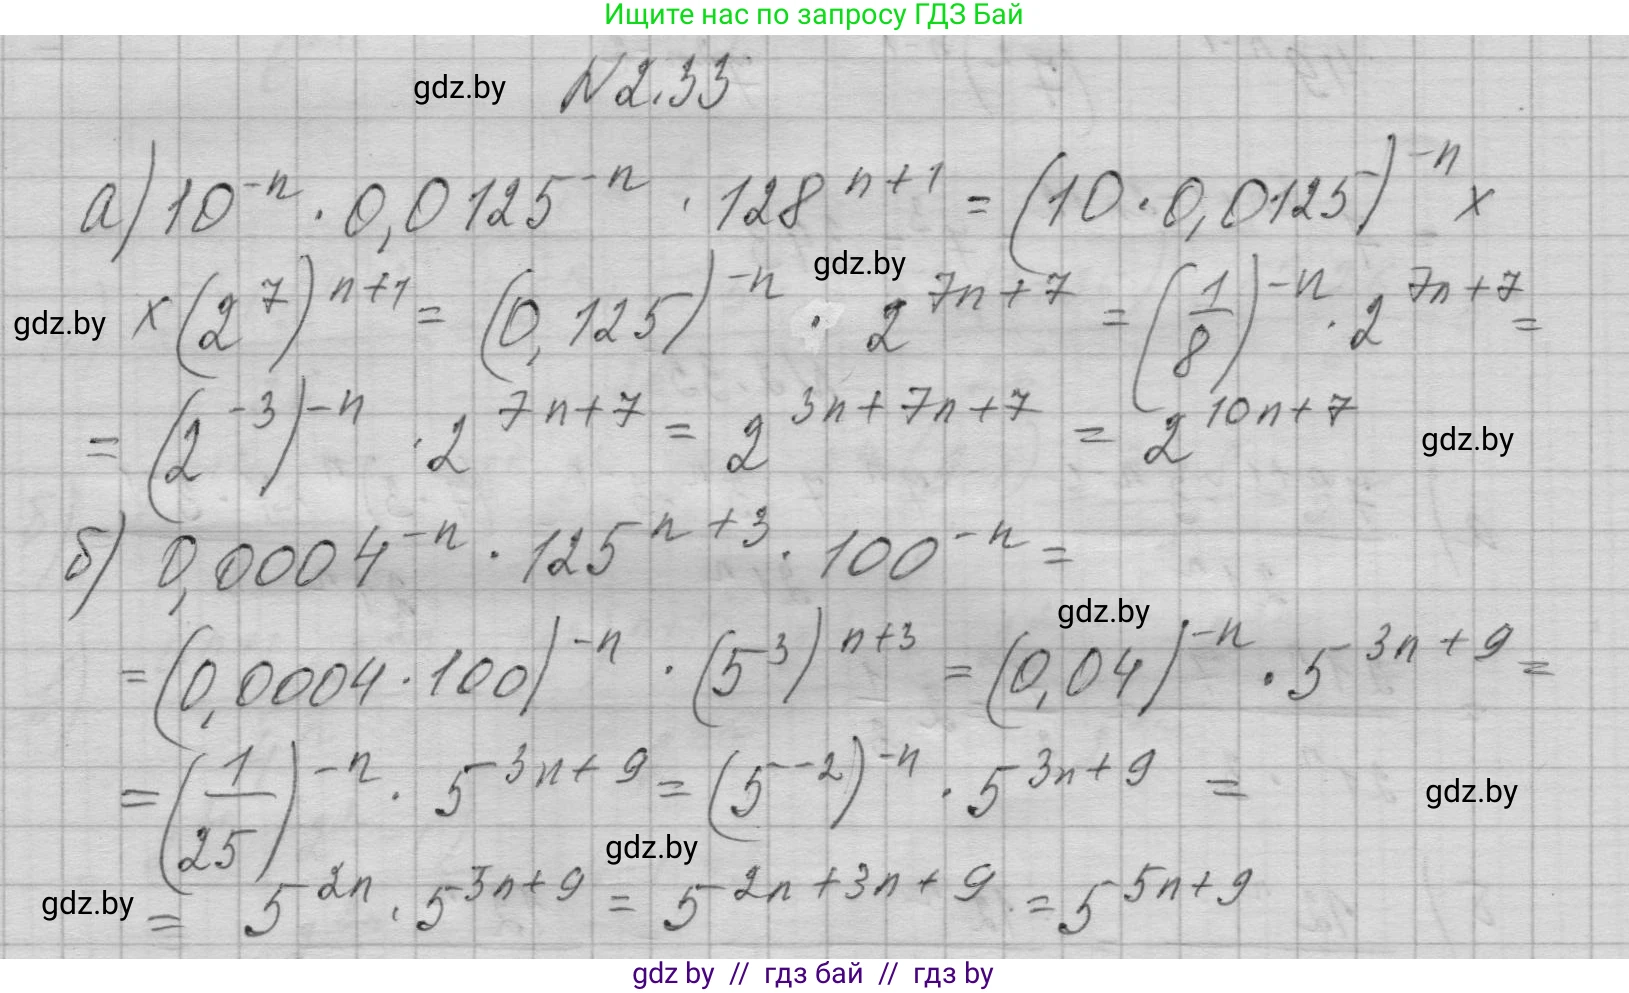 Ищите нас по запросу ГДЗ Бай
gdz.by
N 2.33
а) 10^{-n} · 0,0125^{-n} · 128^{n+1} = (10 · 0,0125)^{-n} ×
gdz.by
gdz.by
× (2^7)^{n+1} = (0,125)^{-n} · 2^{7n+7} = (1/8)^{-n} · 2^{7n+7} =
= (2^{-3})^{-n} · 2^{7n+7} = 2^{3n+7n+7} = 2^{10n+7}
gdz.by
б) 0,0004^{-n} · 125^{n+3} · 100^{-n} =
gdz.by
= (0,0004 · 100)^{-n} · (5^3)^{n+3} = (0,04)^{-n} · 5^{3n+9} =
= (1/25)^{-n} · 5^{3n+9} = (5^{-2})^{-n} · 5^{3n+9} =
gdz.by
gdz.by
gdz.by
= 5^{2n} · 5^{3n+9} = 5^{2n+3n+9} = 5^{5n+9}
gdz by // гдз бай // гдз by